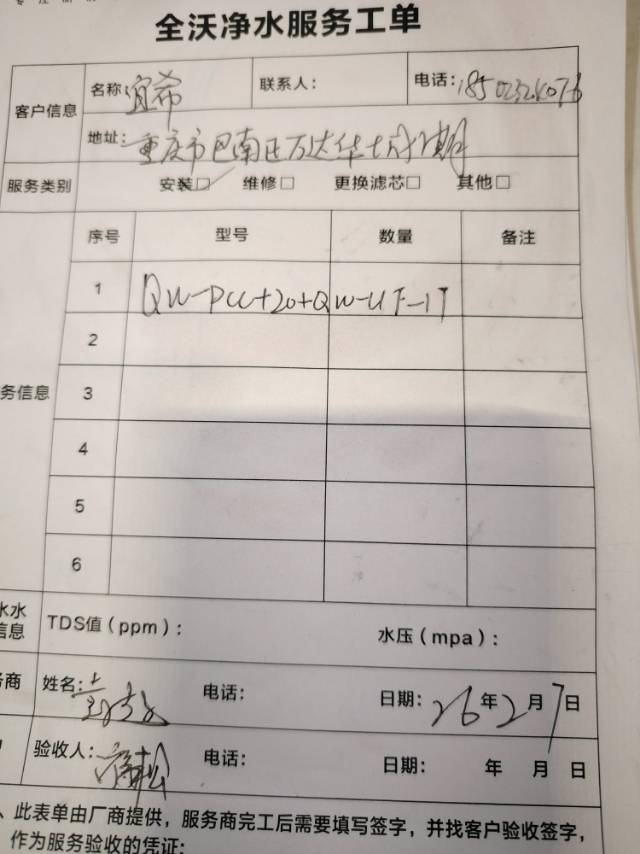 全沃净水服务工单
客户信息 名称: 宜希 联系人: 电话:
地址: 重庆市巴南区万达华城2期
服务类别 安装☑ 维修□ 更换滤芯□ 其他□
序号 型号 数量 备注
1 QW-PCC+20+QW-UF-1T
2
务信息 3
4
5
6
水水
信息 TDS值(ppm): 水压(mpa):
务商 姓名: 电话: 日期: 26年2月7日
验收人: 电话: 日期: 年 月 日
、此表单由厂商提供,服务商完工后需要填写签字,并找客户验收签字,
作为服务验收的凭证;